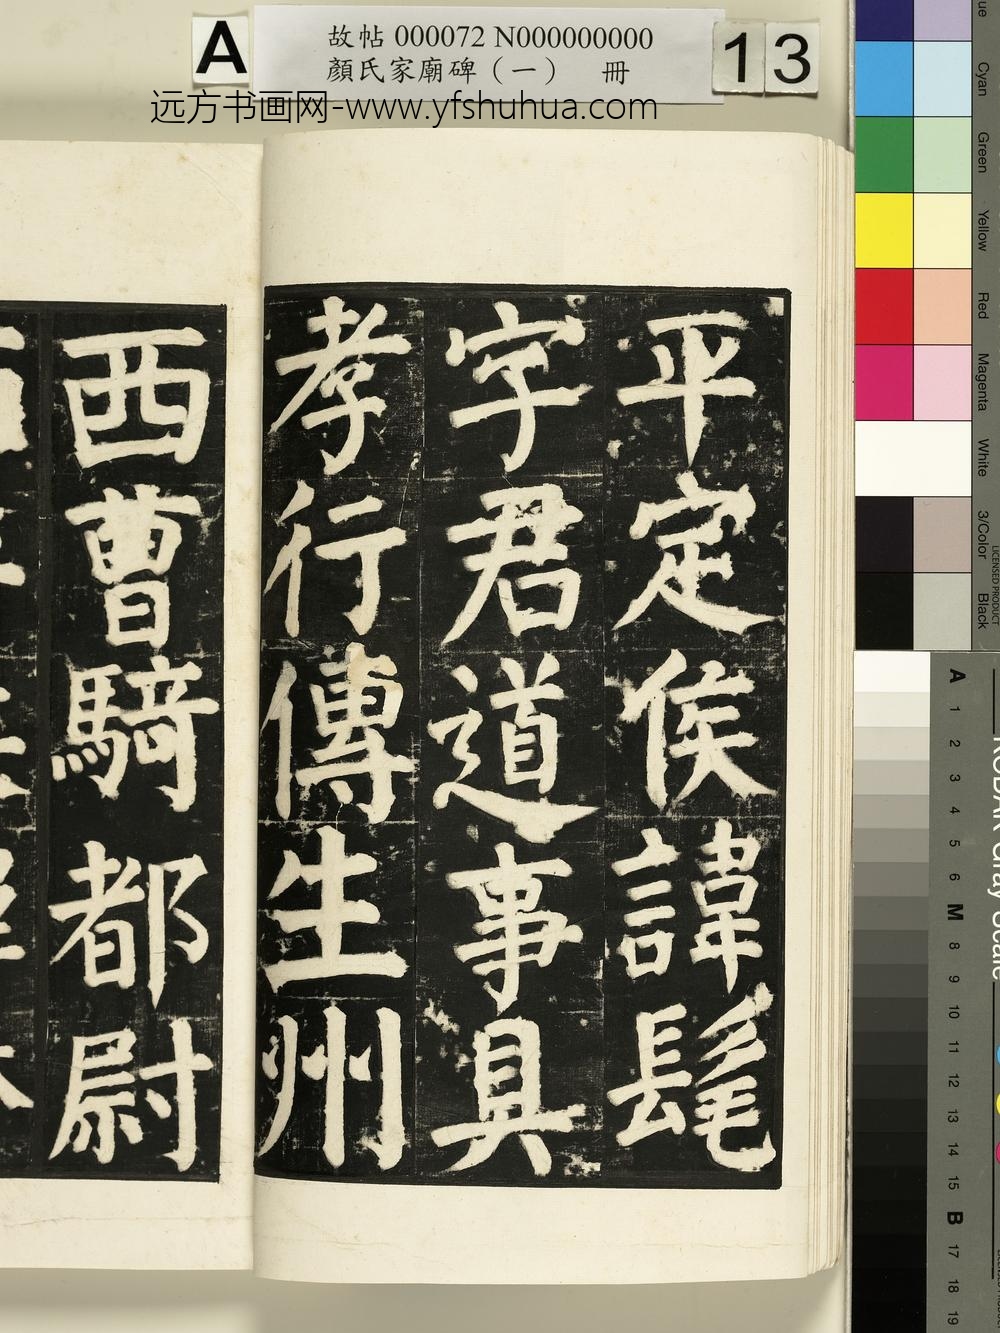 A
故帖 000072 N000000000
顏氏家廟碑（一） 冊
13
远方书画网-www.yfshuhua.com
平定侯諱髦
字君道事具
孝行傳生州
西曹騎都尉
Cyan
Green
Yellow
Red
Magenta
White
3/Color
Black
LICENSED PRODUCT
A
1
2
3
4
5
6
M
8
9
10
11
12
13
14
15
B
17
18
19